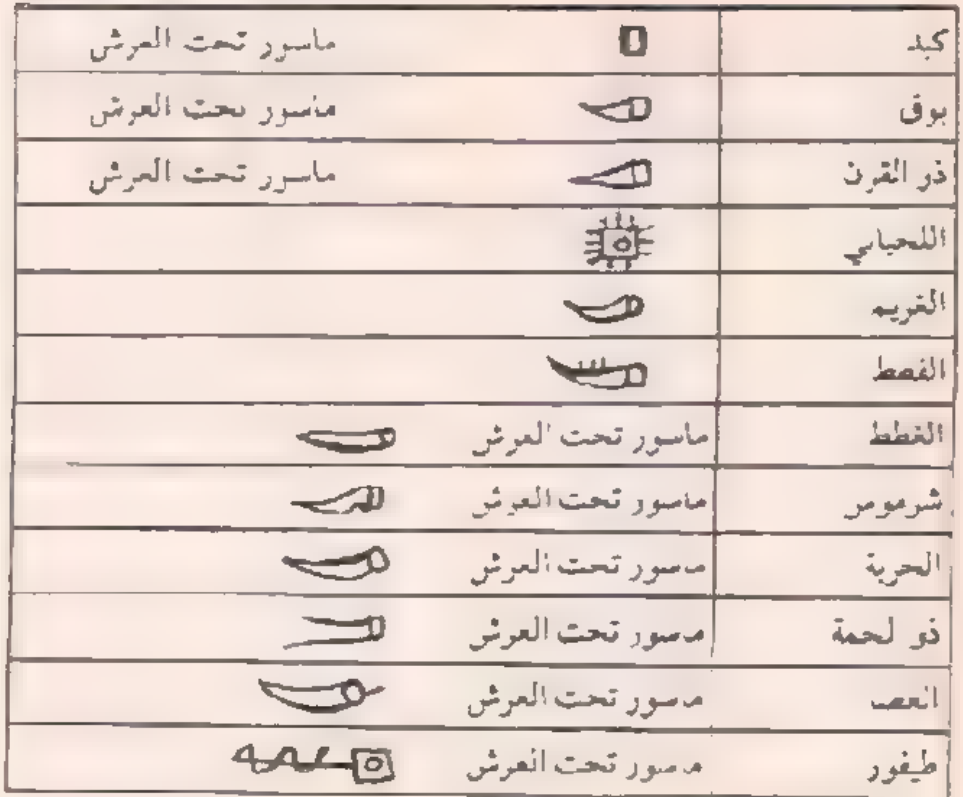 كبد ماسور تحت العرش
بوق ماسور تحت العرش
ذو القرن ماسور تحت العرش
اللحياني
الغريم
القصط
الغطط ماسور تحت العرش
شرموص ماسور تحت العرش
الحربة ماسور تحت العرش
ذو لحمة ماسور تحت العرش
ماسور تحت العرش
طيفور ماسور تحت العرش